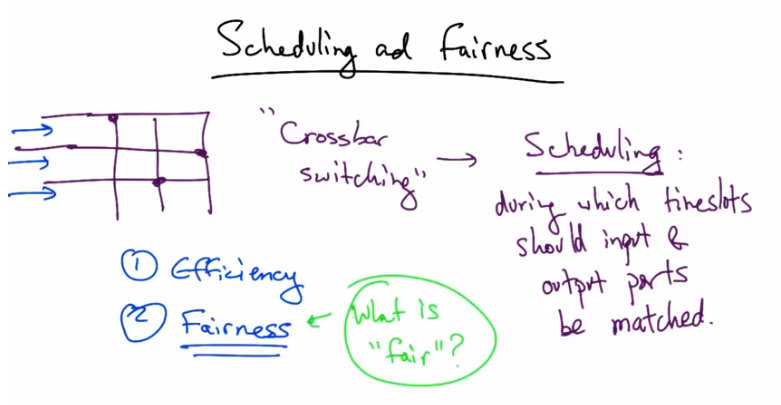 Scheduling ad Fairness
"Crossbar
switching" →
Scheduling:
during which timeslots
should input &
output ports
be matched.
① Efficiency
② Fairness ←
What is
"fair"?